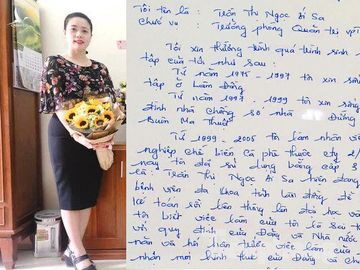 Tôi tên là: Trần Thị Ngọc Ái Sa
Chức vụ: Trưởng phòng Quản trị
Tôi xin tường trình quá trình sinh
tập của tôi như sau:
Từ năm 1975 - 1997 tôi xin
tập ở Lâm Đồng
Từ năm 1997 - 1999 tôi xin
đình nhà chồng số nhà Đường
Buôn Ma Thuột
Từ 1999 - 2005 tôi làm nhân
nghiệp chế biến Cà phê thuộc cty 2/
này tôi đã sử dụng bằng cấp 3
là: Trần Thị Ngọc Ái Sa hiện đang
bệnh viện đa khoa tỉnh Lâm đồng để
kế toán rồi liên thông lên đại học
tôi biết việc làm của tôi là sai
với quy định của Đảng và Nhà nước
năn và hối hận trước việc làm của
nhận mọi hình thức của Đảng và